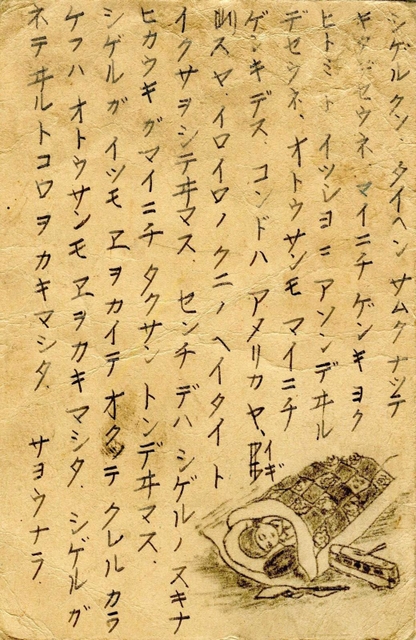 シゲル クン タイヘン サムク ナツテ
キタデセウネ マイニチ ゲンキヨク
ヒトミト イツシヨニ アソンデヰル
デセウネ、オトウサンモ マイニチ
ゲンキデス. コンドハ アメリカヤ、イギ
スヤ イロイロノ クニノ ヘイタイト
イクサヲシテヰマス. センチデハ シゲルノスキナ
ヒカウキガマイニチ タクサン トンデヰマス.
シゲルガ イツモ ヱヲカイテ オクツテ クレルカラ
ケフハ オトウサンモ ヱヲカキマシタ. シゲルガ
ネテヰルトコロヲ カキマシタ. サヨウナラ